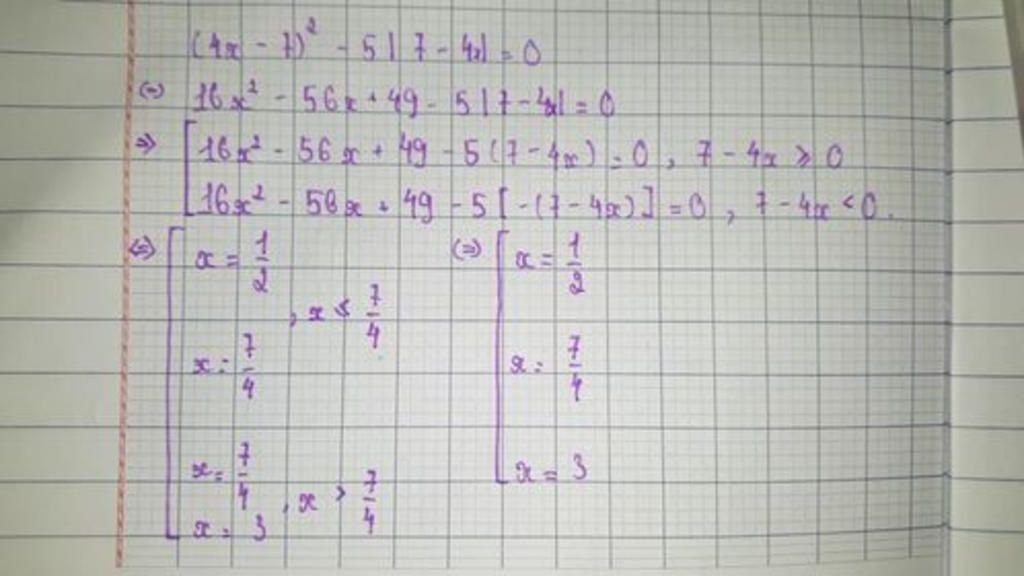 (4x - 7)² - 5|7 - 4x| = 0
(=) 16x² - 56x + 49 - 5|7 - 4x| = 0
=> [ 16x² - 56x + 49 - 5(7 - 4x) = 0 , 7 - 4x ⩾ 0
16x² - 56x + 49 - 5[-(7 - 4x)] = 0 , 7 - 4x < 0.
(=) [ x = 1/2 (=) [ x = 1/2
, x ≤ 7/4
x = 7/4 x = 7/4
x = 7/4 x = 3
, x > 7/4
x = 3